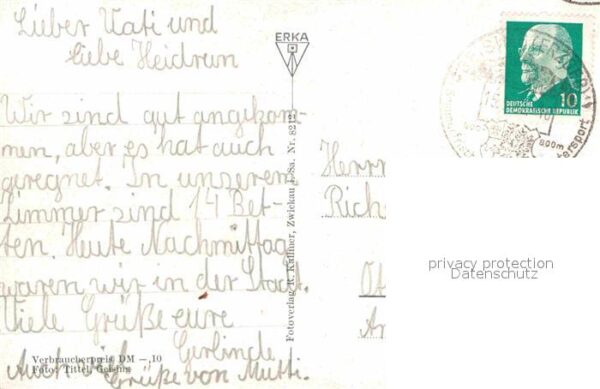 Lieber Vati und
liebe Heidrun
Wir sind gut angekom-
men, aber es hat auch
geregnet. In unserem
Zimmer sind 14 Bet-
ten. Heute Nachmittag
waren wir in der Stadt.
Viele Grüße eure
Gerlinde
Auch viele
Grüße von Mutti.
Verbraucherpreis DM –,10
Foto: Tittel,
ERKA
Fotoverlag R. Kallmer, Zwickau i. Sa. Nr. 8212
Herrn
Rich
Ot
privacy protection
Datenschutz
10
DEUTSCHE
DEMOKRATISCHE REPUBLIK
800m